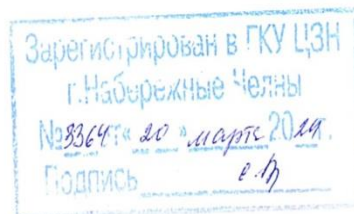 Зарегистрирован в ГКУ ЦЗН
г.Набережные Челны
№3364 от « 20 » марта 20 г.
Подпись